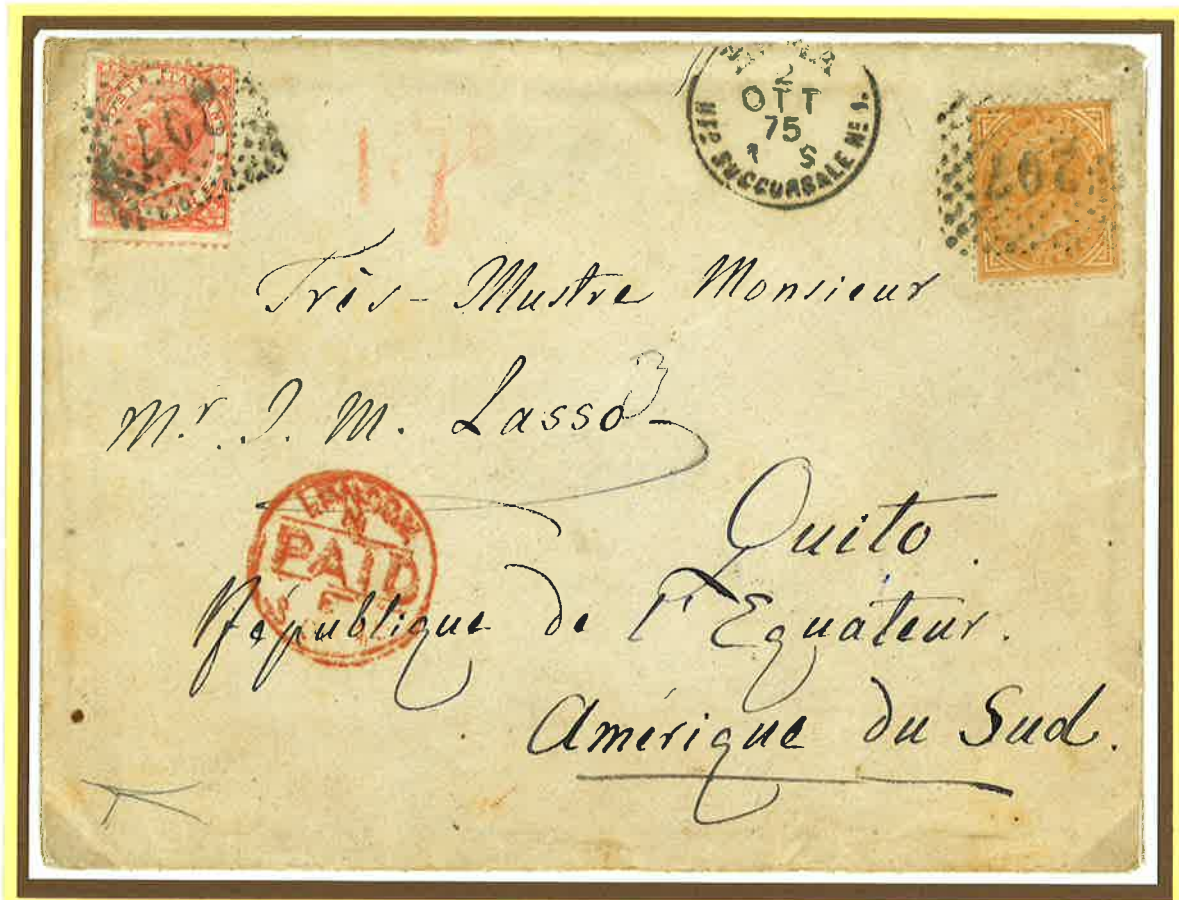 OTT
75
S
SUCCURSALE Nº 1.
297
1.7
Très-Illustre Monsieur
Mr. J. M. Lasso
LONDON
PAID
Quito.
République de l'Equateur.
Amérique du Sud.